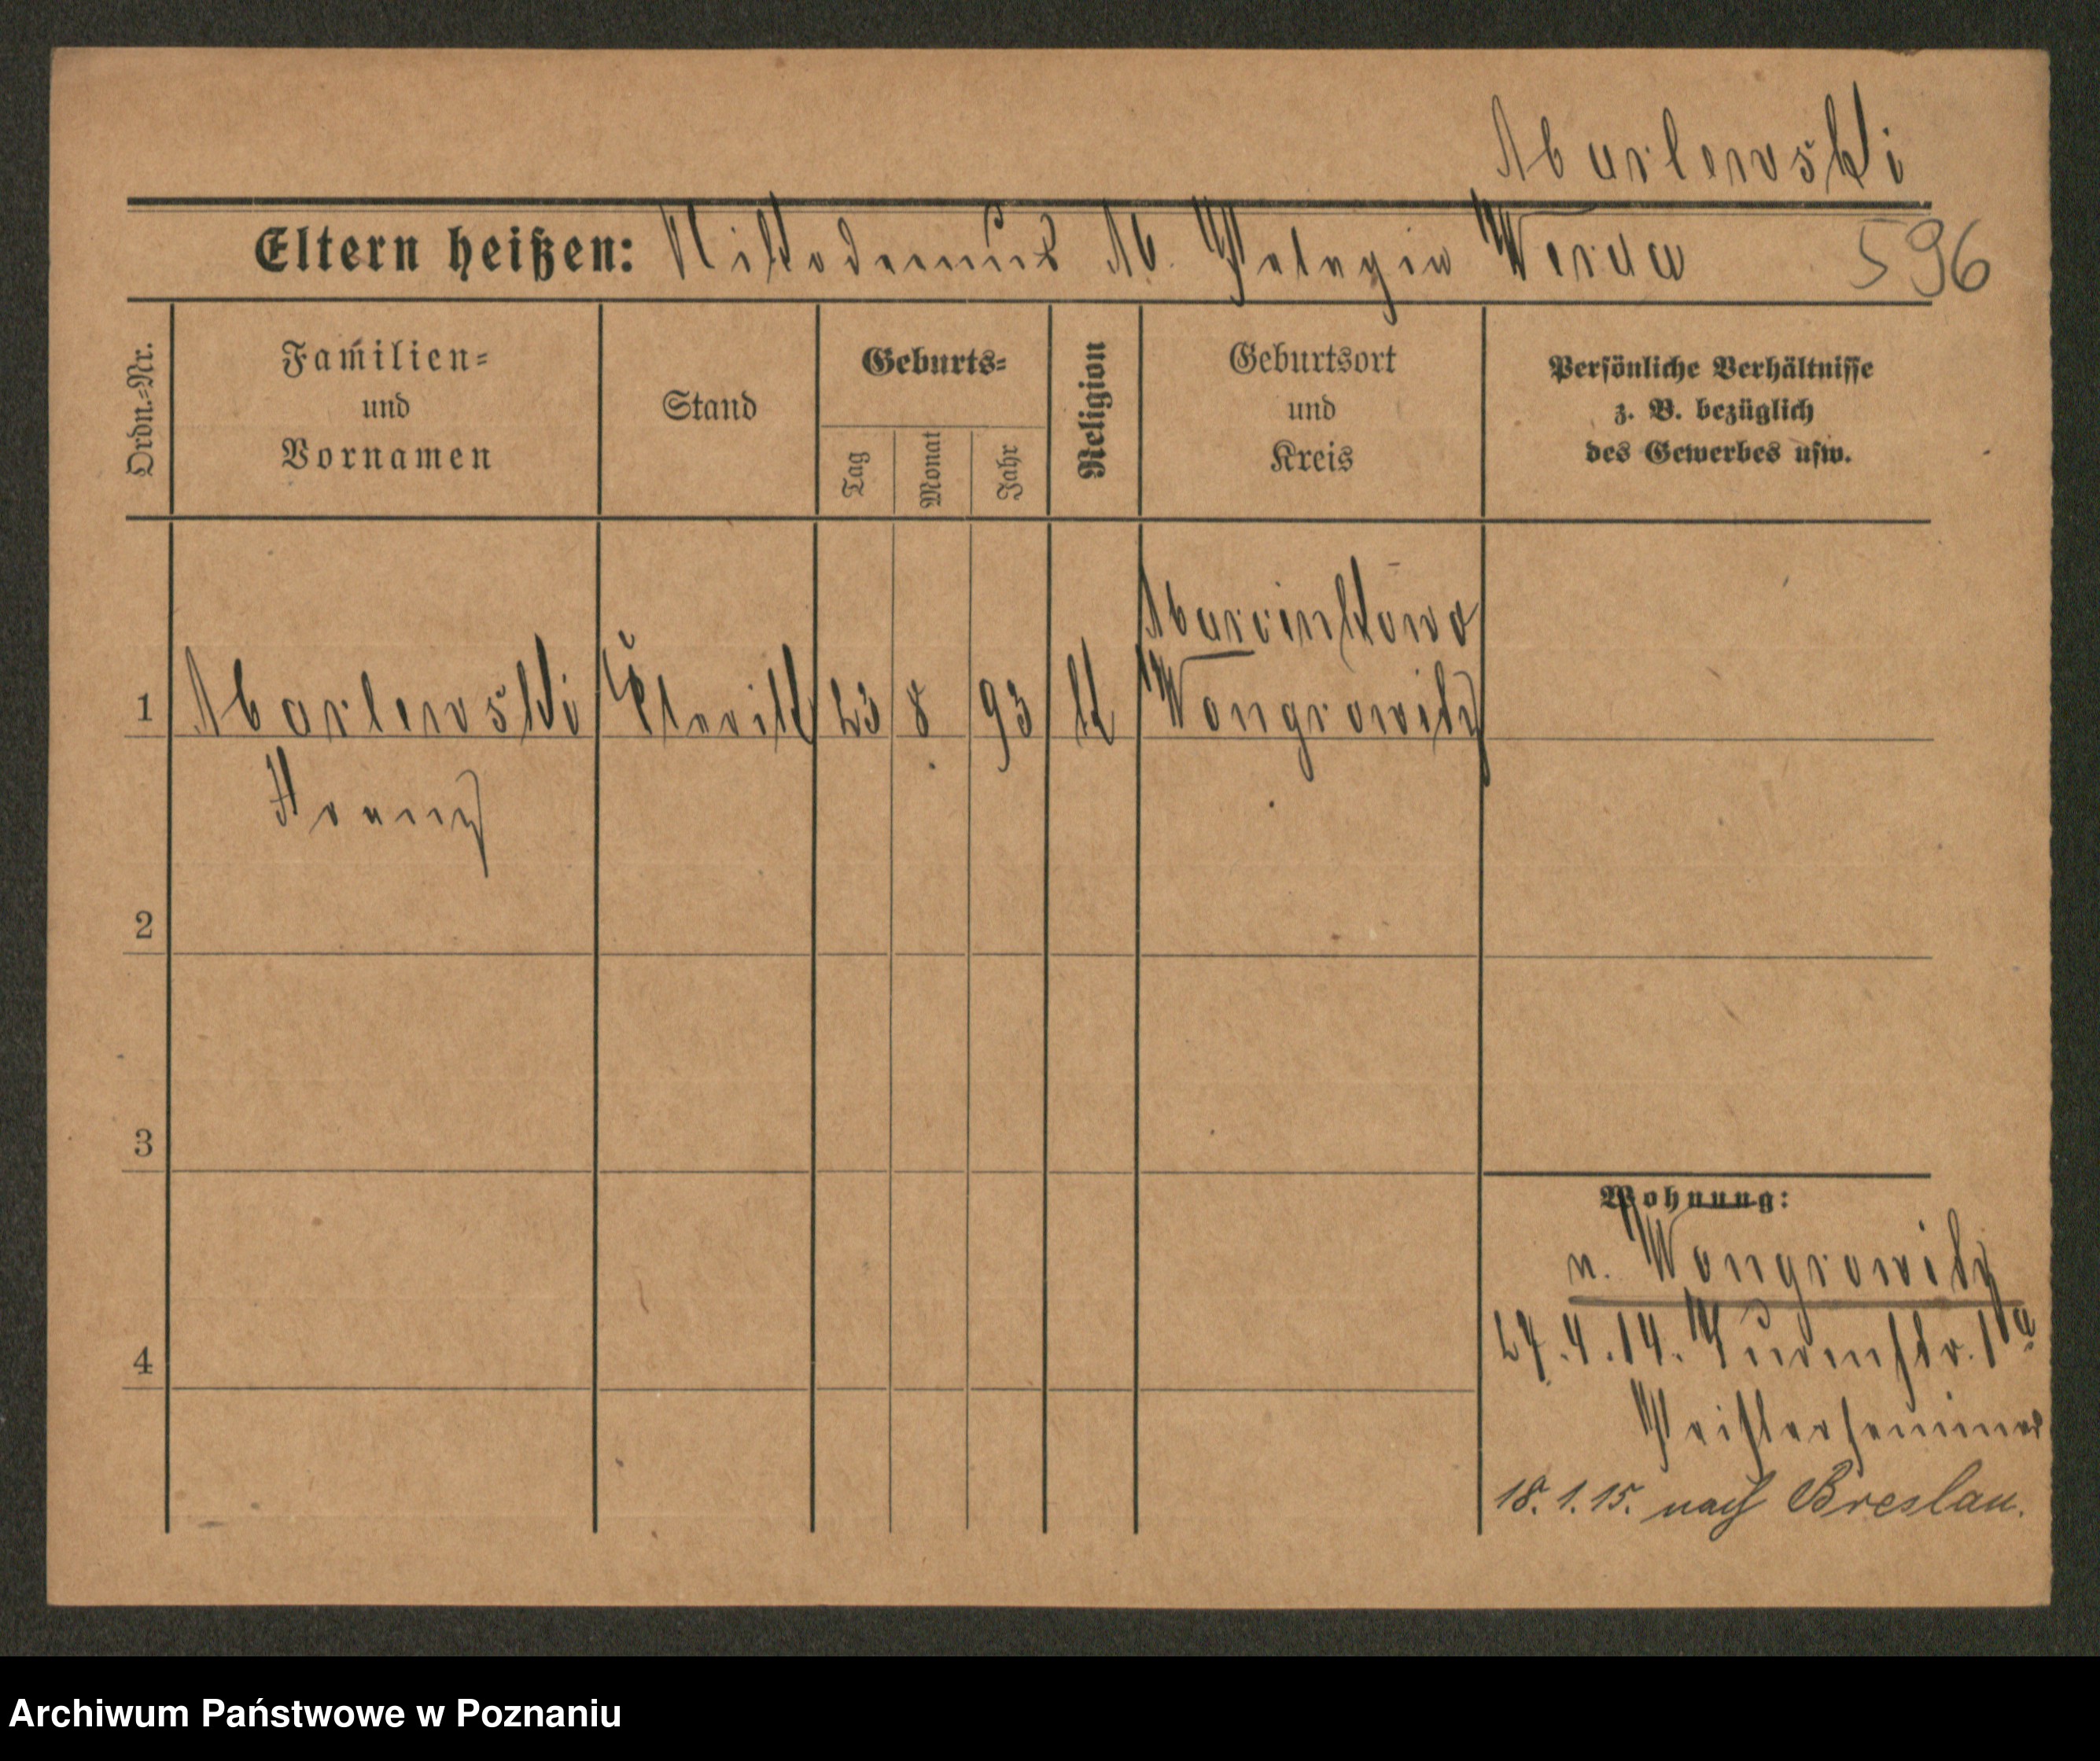 Marlewski
Eltern heißen: Nikodemus M. Pelagia Werda
596
Ordn.-Nr.
Familien-
und
Vornamen
Stand
Geburts-
Tag
Monat
Jahr
Religion
Geburtsort
und
Kreis
Persönliche Verhältnisse
z. B. bezüglich
des Gewerbes usw.
1 Marlewski Klerik 23 8 93 k Marcinkowo
Wongrowitz
Franz
2
3
4
Wohnung:
n. Wongrowitz
27.4.14. 1a
Priesterseminar
18.1.15. nach Breslau.
Archiwum Państwowe w Poznaniu